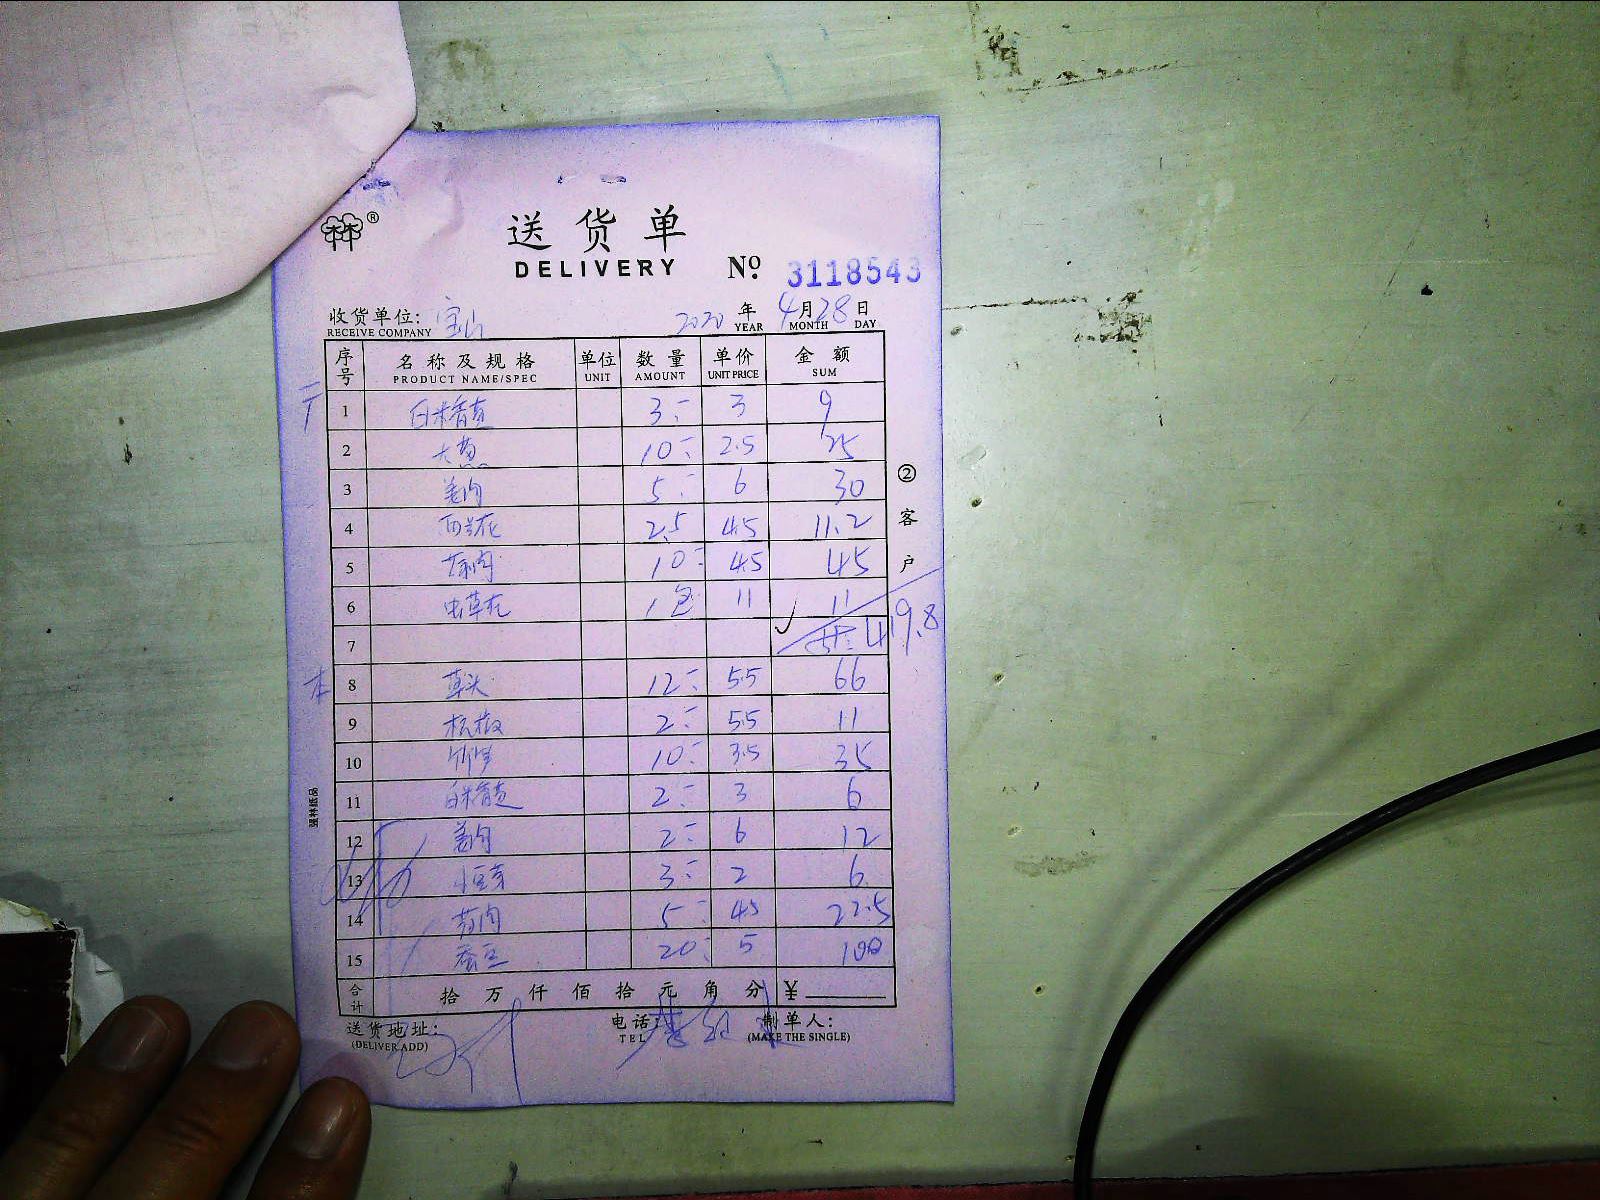 ®
送货单
DELIVERY No. 3118543
收货单位: 宝山 2020 年 4 月 28 日
RECEIVE COMPANY YEAR MONTH DAY
序号 名称及规格 单位 数量 单价 金额
PRODUCT NAME/SPEC UNIT AMOUNT UNIT PRICE SUM
1 白米香苋 3 3 9
2 大葱 10 2.5 25
3 姜肉 5 6 30
4 西兰花 2.5 4.5 11.2
5 10 4.5 45
6 虫草花 1包 11 11
7 419.8
8 草头 12 5.5 66
9 杭椒 2 5.5 11
10 竹笋 10 3.5 35
11 白米香苋 2 3 6
12 姜肉 2 6 12
13 小豆芽 3 2 6
14 5 4.5 22.5
15 蚕豆 20 5 100
合计 拾万仟佰拾元角分 ¥
送货地址: 电话: 制单人:
(DELIVER ADD) TEL (MAKE THE SINGLE)
②客户
强林纸品